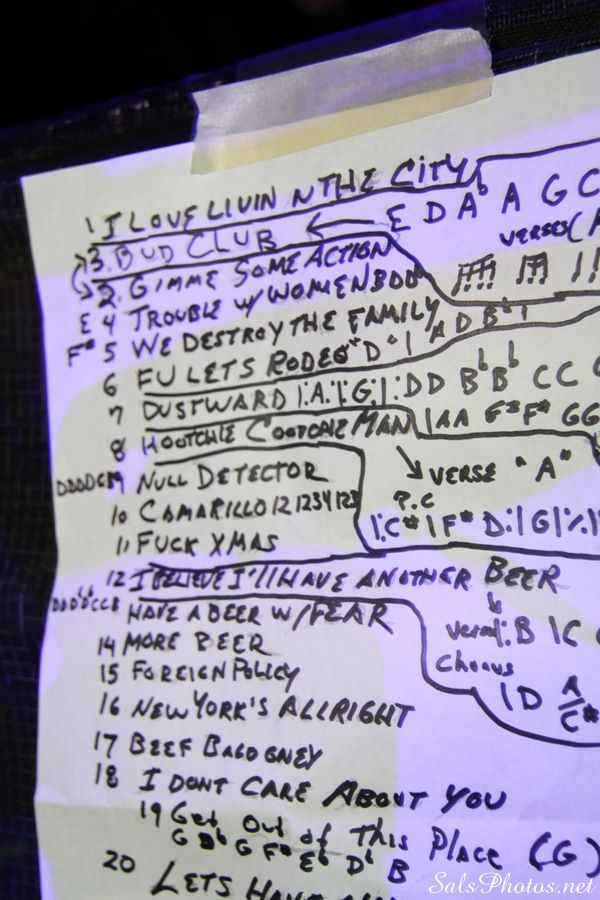 1 I LOVE LIVIN N THE CITY
3. BUD CLUB ← E D Ab A G C
2. GIMME SOME ACTION VERSES (A
E 4 TROUBLE W/ WOMEN BDD
F# 5 WE DESTROY THE FAMILY
6 FU LETS RODEO "D" | A D Bb |
7 DUSTWARD |:A.|:G.|:DD Bb Bb CC
8 HOOTCHIE COOTCHIE MAN |AA G# F# GG
9 NULL DETECTOR VERSE "A"
10 CAMARILLO 12 1234 123 P.C
11 FUCK XMAS |:C# | F# D:|G|%|
12 I BELIEVE I'll HAVE ANOTHER BEER
HAVE A BEER W/ FEAR Verse|:B |C
14 MORE BEER Chorus
15 FOREIGN POLICY |D A/C#
16 NEW YORK'S ALLRIGHT
17 BEEF BALOGNEY
18 I DONT CARE ABOUT YOU
19 Get Out of This Place (G)
G Db G F# Eb Db B
20 LETS HAVE
SalsPhotos.net